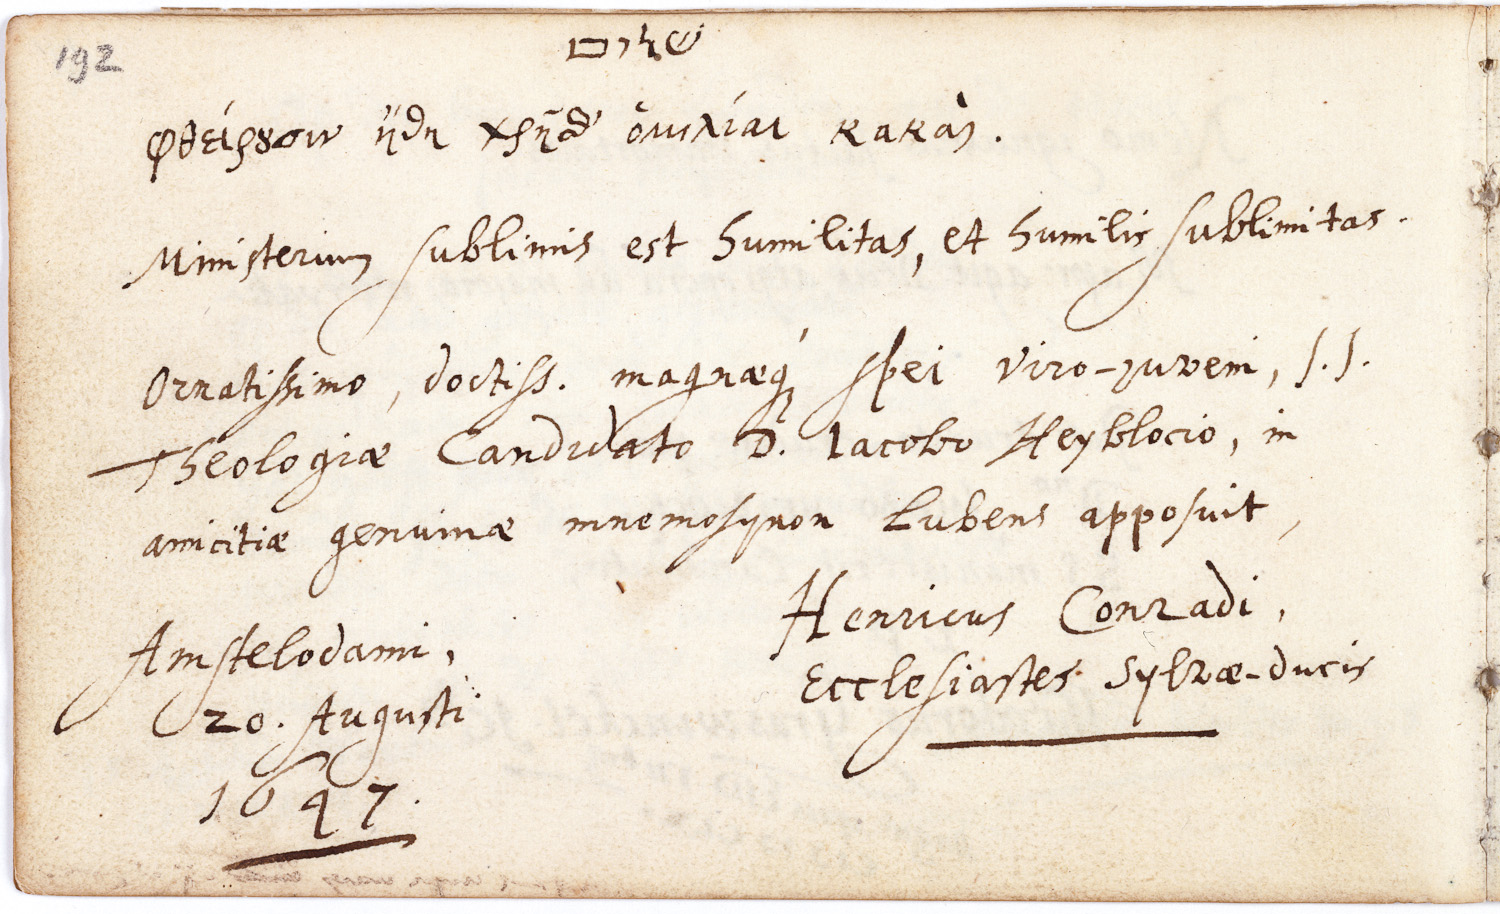 192
שלום
φθείρουσιν ἤδη χρῆσθ' ὁμιλίαι κακαὶ.
Ministerium sublimis est humilitas, et humilis sublimitas.
Ornatissimo, doctiss. magnæq́ spei viro-juveni, S.S.
Theologiæ Candidato D. Iacobo Heyblocio, in
amicitiæ genuinæ mnemosynon lubens apposuit,
Henricus Conradi,
Ecclesiastes Sylvæ-ducis
Amstelodami,
20. Augusti
1647.